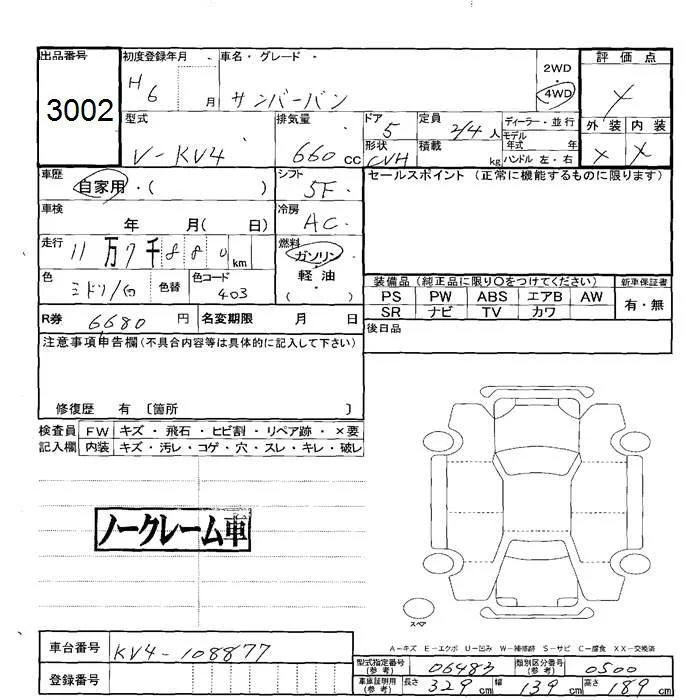 出品番号 初度登録年月 車名・グレード 2WD・4WD 評価点
3002 H6 月 サンバーバン
型式 排気量 ドア 定員 ディーラー・並行 外装 内装
V-KV4 660cc 5 2/4人 モデル年式 年
形状 CVH 積載 kg ハンドル 左・右 × ×
車歴 自家用・( ) シフト 5F セールスポイント (正常に機能するものに限ります)
車検 年 月( 日) 冷房 AC
走行 11万7千880km 燃料 ガソリン 軽油 ( )
色 ミドリ/白 色替 色コード 403
装備品 (純正品に限り○をつけてください) 新車保証書
PS PW ABS エアB AW 有・無
SR ナビ TV カワ
R券 6680円 名変期限 月 日 後日品
注意事項申告欄(不具合内容等は具体的に記入して下さい)
修復歴 有 〔箇所 〕
検査員 FW キズ・飛石・ヒビ割・リペア跡・×要
記入欄 内装 キズ・汚レ・コゲ・穴・スレ・キレ・破レ
ノークレーム車
スペア
A-キズ E-エクボ U-凹み W-補修跡 S-サビ C-腐食 XX-交換済
車台番号 KV4-108877
型式指定番号(参考) 06483 類別区分番号(参考) 0500
登録番号
車庫証明用(参考) 長さ 329cm 幅 139cm 高さ 189cm